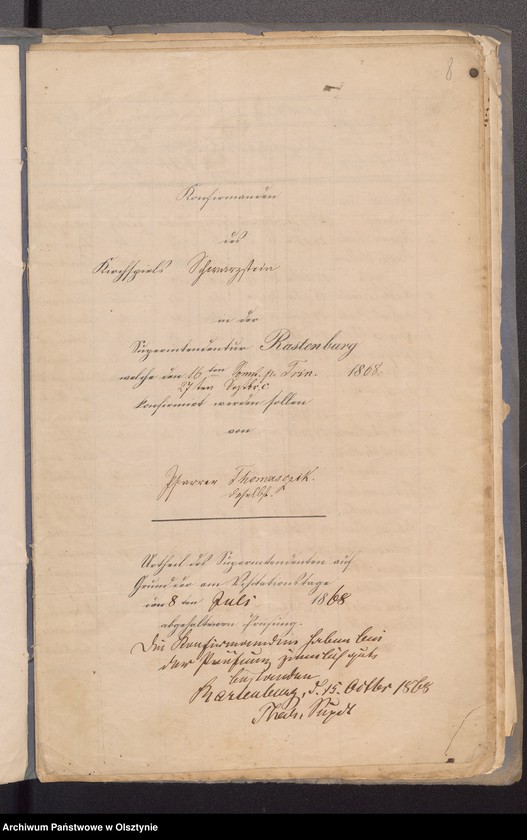 8
Konfirmanden
des
Kirchspiels Schwarzstein
in der
Superintendentur Rastenburg
welche den 16ten Sonnt. p. Trin. 1868.
27ten Septbr. c
konfirmirt werden sollen
von
Pfarrer Thomasczik.
daselbst.
Urtheil des Superintendenten auf
Grund der am Visitationstage
den 8 ten Juli 1868
abgehaltenen Prüfung.
Die Konfirmanden haben bei
der Prüfung ziemlich gut
bestanden
Rastenburg, d. 15. Octbr 1868
Supdt
Archiwum Państwowe w Olsztynie